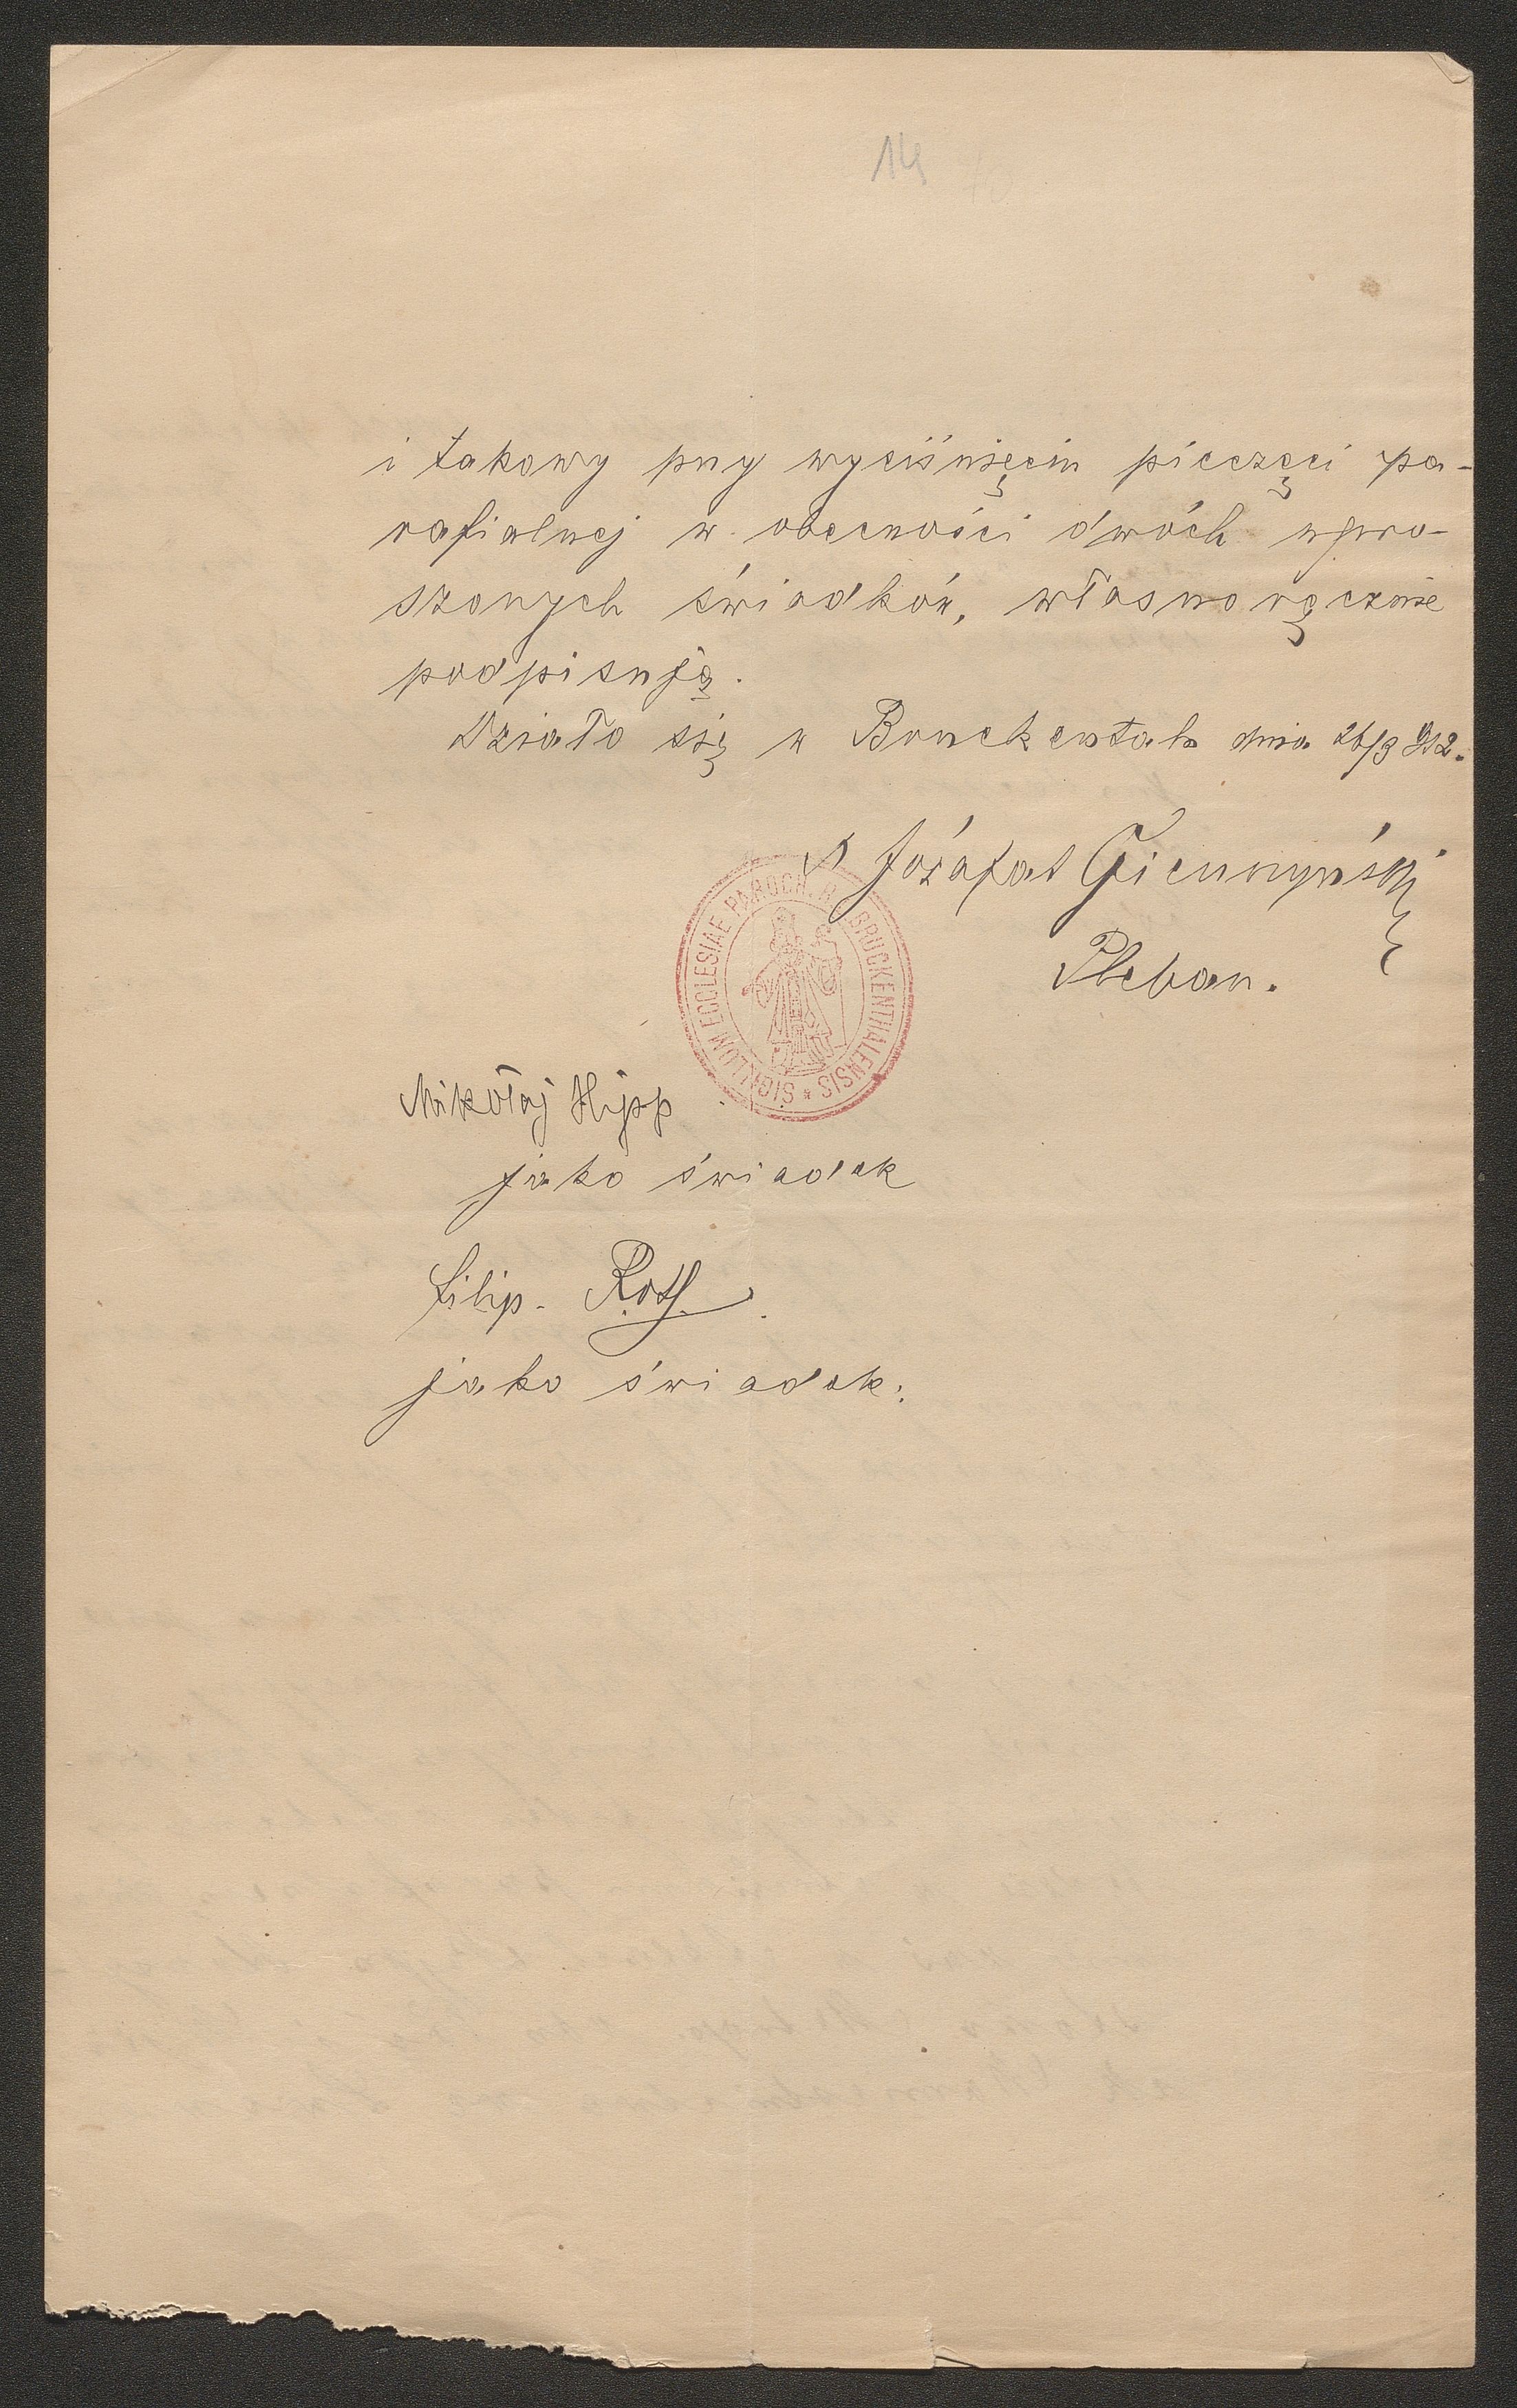 14
i takowy przy wyciśnięciu pieczęci pa-
rafialnej w obecności dwóch upro-
szonych świadków, własnoręcznie
podpisuję.
Działo się w Bruckentalu dnia 26/3 912.
X Jozafat
Pleban.
SIGILLUM ECCLESIAE PAROCH. R. BRUCKENTHALENSIS *
Mikołaj Hipp
jako świadek
Filip. Roth.
jako świadek.